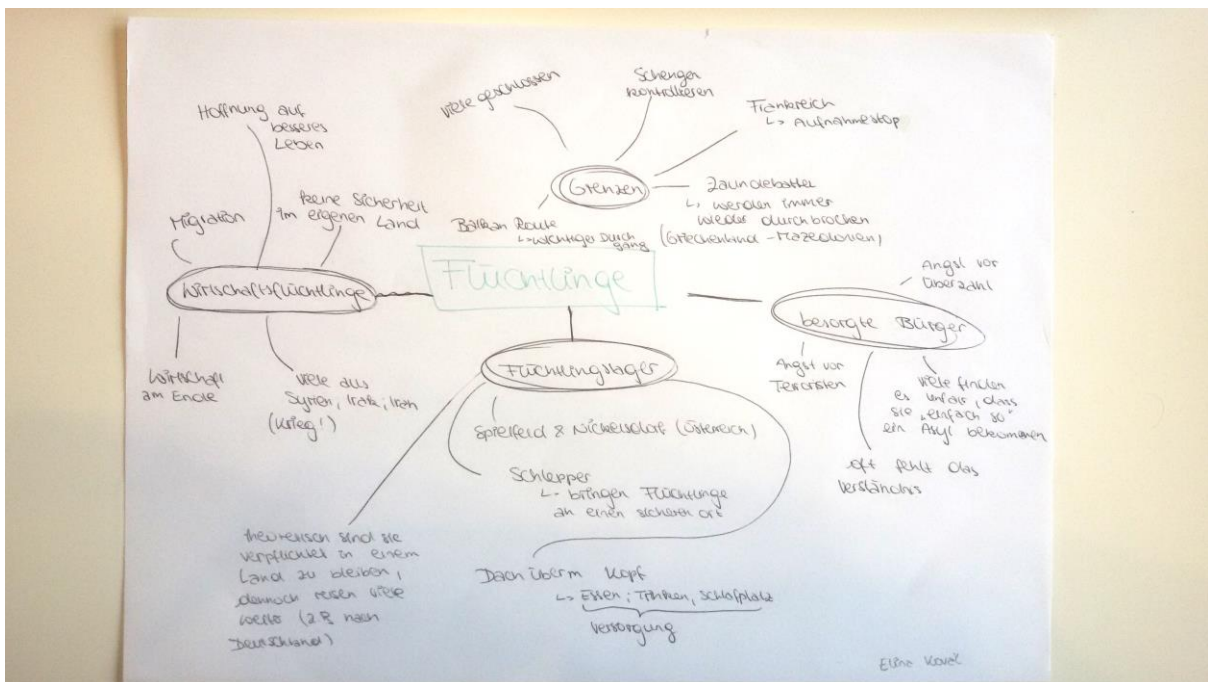 Flüchtlinge
Grenzen
viele geschlossen
Schengen
kontrollieren
Frankreich
↳ Aufnahmestop
Zaundebatte
↳ werden immer
wieder durchbrochen
(Griechenland - Mazedonien)
Balkan Route
↳ wichtiger Durch
gang
Wirtschaftsflüchtlinge
Hoffnung auf
besseres
Leben
Migration
keine Sicherheit
im eigenen Land
Wirtschaft
am Ende
viele aus
Syrien, Irak, Iran
(Krieg!)
besorgte Bürger
Angst vor
Überzahl
Angst vor
Terroristen
viele finden
es unfair, dass
sie „einfach so"
ein Asyl bekommen
oft fehlt das
Verständnis
Flüchtlingslager
Spielfeld & Nickelsdorf (Österreich)
Schlepper
↳ bringen Flüchtlinge
an einen sicheren Ort
theoretisch sind sie
verpflichtet in einem
Land zu bleiben,
dennoch reisen viele
weiter (z.B. nach
Deutschland)
Dach überm Kopf
↳ Essen, Trinken, Schlafplatz
Versorgung